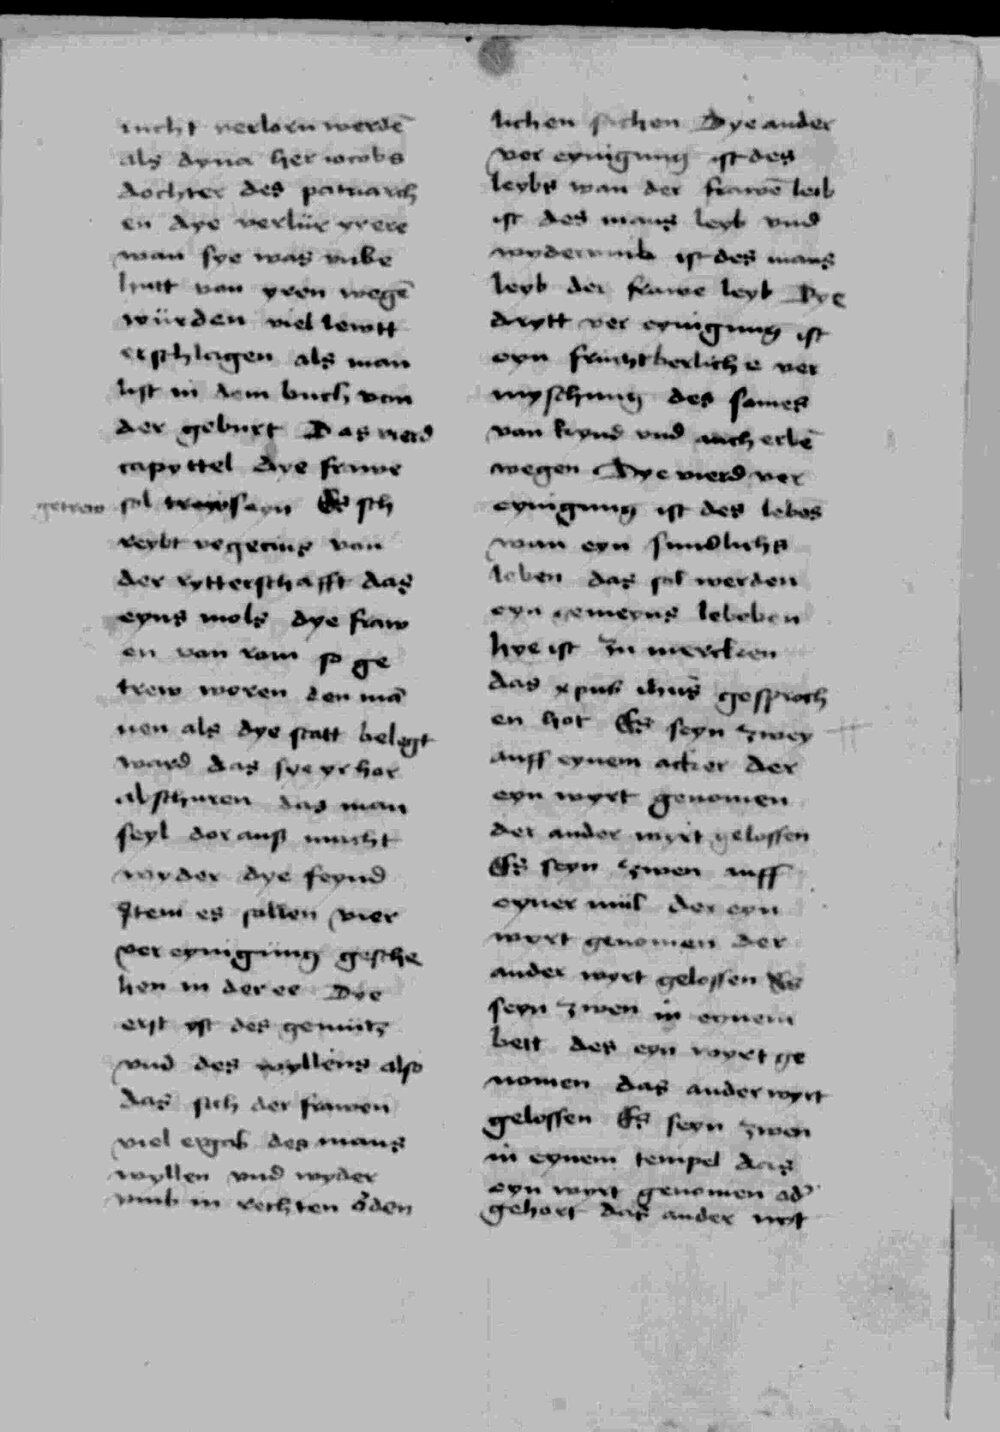 nicht verlorn werdē
als dyna her iacobs
dochter des patriarch
en dye verlür yr ere
wan sye was vnbe
hutt von yren wegē
würden viel lewtt
erschlagen als man
list in dem buch von
der geburt Das vierd
capyttel dye frawe
getrew
sol trew sayn Es sch
reybt vegecius von
der rytterschafft das
eyns mols dye fraw
en von rom so ge
trew woren den mā
nen als dye statt belegt
ward das sye yr hor
abschuren das man
seyl dor auß macht
wyder dye feynd
Item es sollen vier
ver eynigüng gesche
hen in der ee Dye
erst yst des gemütz
vnd des wyllens also
das sich der frawen
viel ergeb des mans
wyllen vnd wyder
vmb in rechten ōden
lichen sachen Dye ander
ver eynigung ist des
leybs wan der frawē leib
ist des mans leyb vnd
wyderumb ist des mans
leyb der frawe leyb Dye
drytt ver eynigung ist
eyn fruchtberliche ver
myschung des sames
von kynd vnd auch erbē
wegen Dye vierd ver
eynigung ist des lebēs
wan eyn sundlichs
leben das sol werden
eyn gemeyns lebeben
hye ist zu mercken
das xpus ihus gesproch
en hot Es seyn zwey
auff eynem acker der
eyn wyrt genomen
der ander wyrt gelossen
Es seyn zwen auff
eyner mül der eyn
wyrt genomen der
ander wyrt gelossen Es
seyn zwen in eynem
bett des eyn wyrt ge
nomen das ander wyrt
gelossen Es seyn zwen
in eynem tempel das
eyn wyrt genomen ad'
gehort das ander nyt